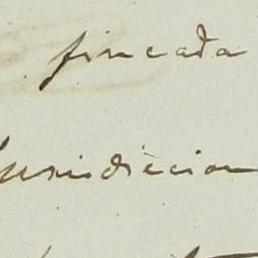 fincada
Jurisdiccion